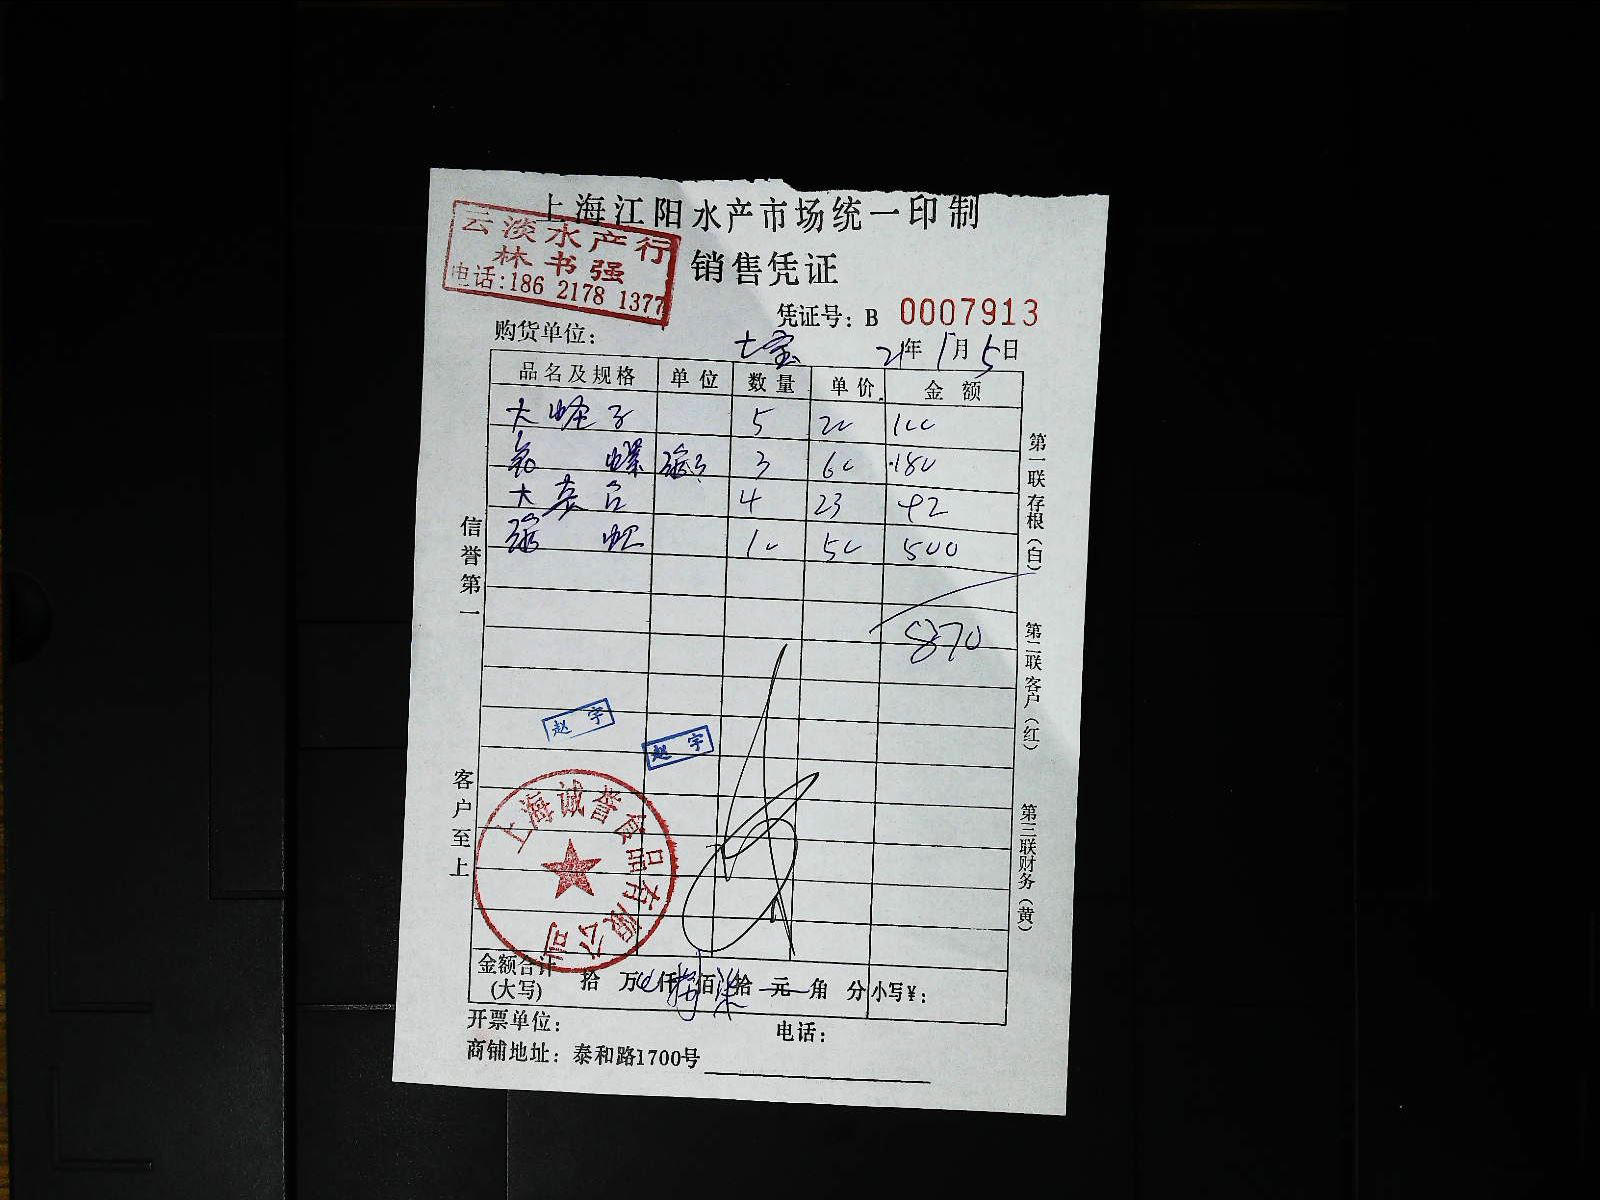 上海江阳水产市场统一印制
云淡水产行
林书强
电话:186 2178 1377
销售凭证
凭证号: B 0007913
购货单位: 七宝 21年1月5日
品名及规格 单位 数量 单价 金额
大蛏子 5 20 100
螺 3 60 180
大 4 23 92
10 50 500
870
信誉第一
客户至上
第一联存根(白)
第二联客户(红)
第三联财务(黄)
赵宇
赵宇
上海诚誉食品有限公司
金额合计(大写) 拾 万 仟 捌 佰 柒 拾 元 角 分 小写¥:
开票单位: 电话:
商铺地址: 泰和路1700号